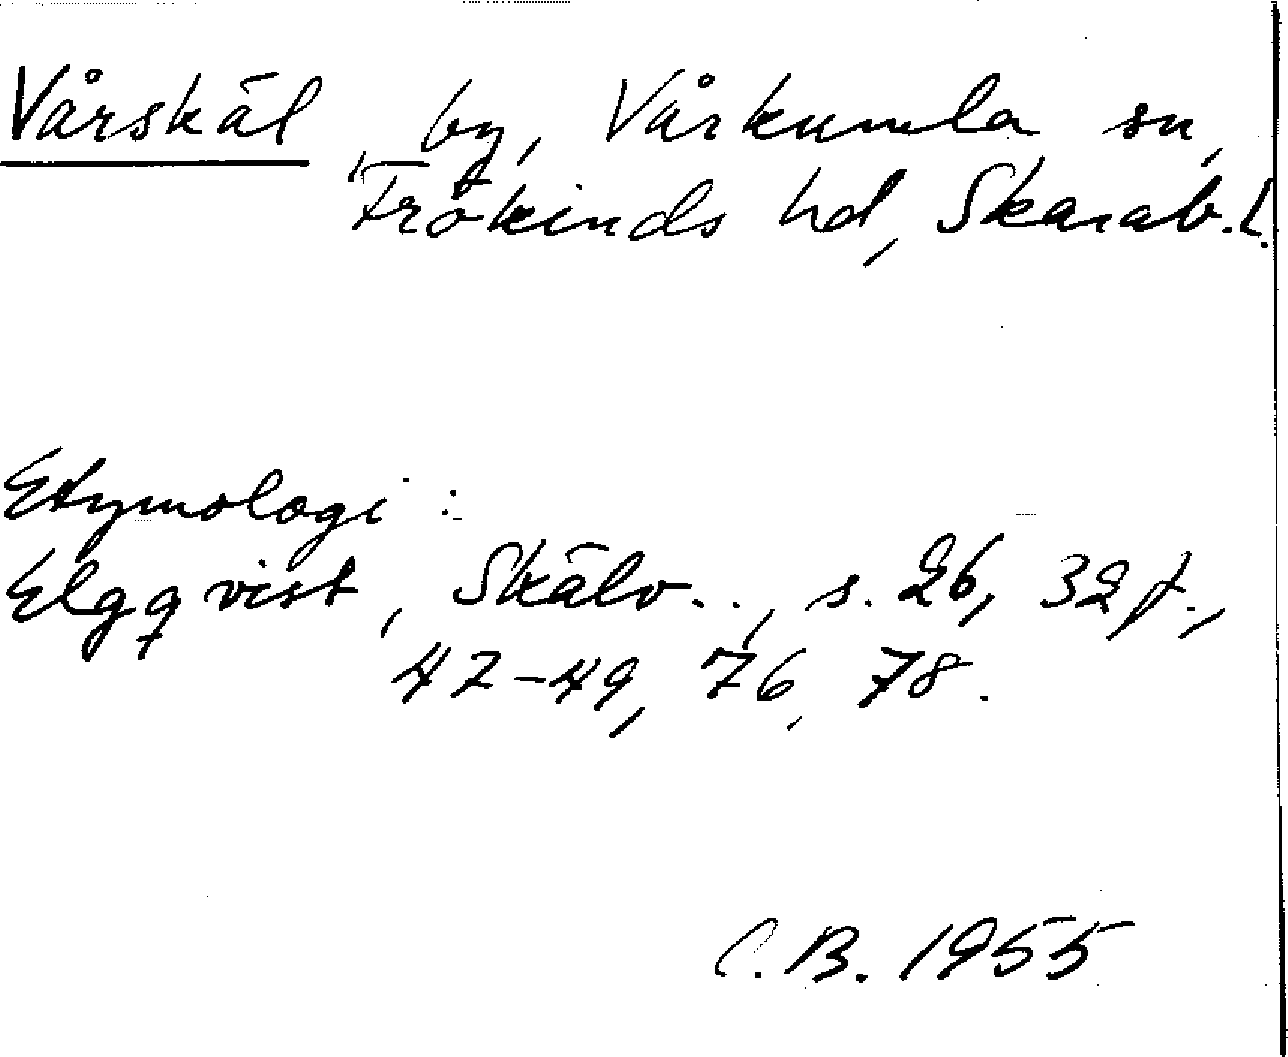 Vårskäl by, Vårkumla sn,
Frökinds hd, Skarab.l.
Etymologi:
Elgqvist, Skälv.., s. 26, 32 f.,
47-49, 76, 78.
C.B. 1955